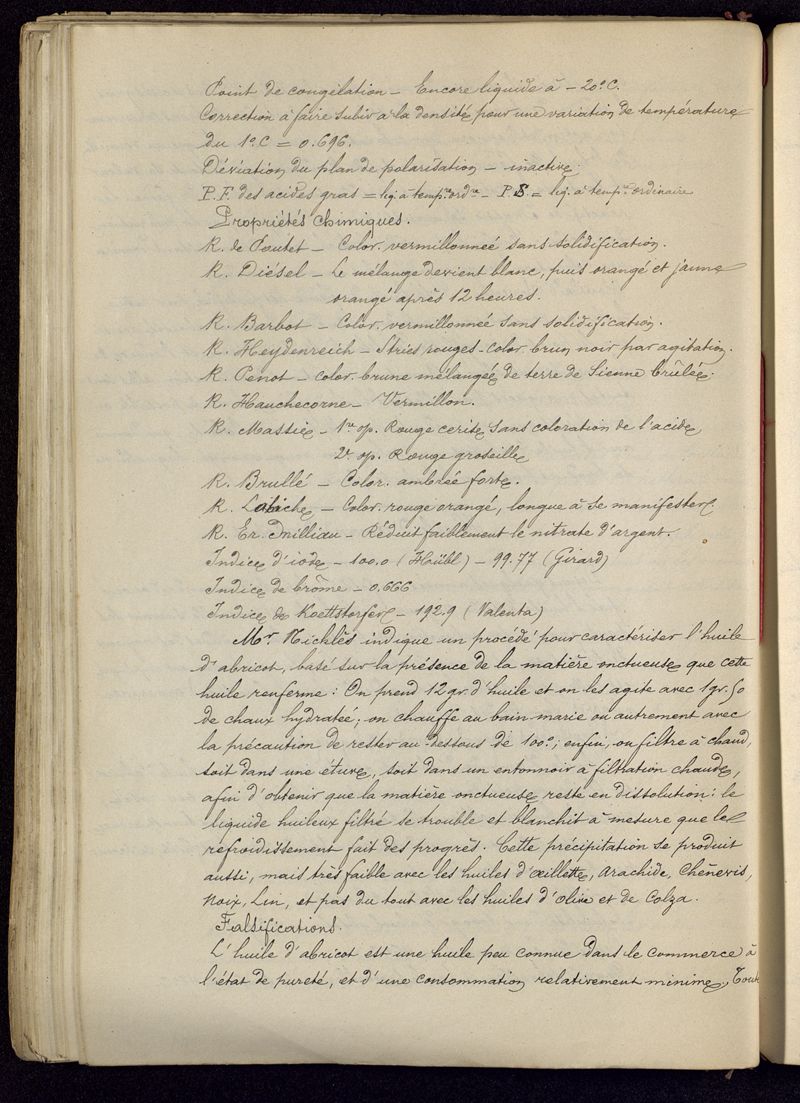 Point de congélation – Encore liquide à – 20° C.
Correction à faire subir à la densité pour une variation de température
du 1° C = 0.696.
Déviation du plan de polarisation – inactive.
P.F. des acides gras = liq. à temp.re ord.re – P.S. = liq. à temp.re ordinaire
Propriétés chimiques.
R. de Poutet – Color. vermillonneé sans solidification.
R. Diésel – Le mélange devient blanc, puis orangé et jaune
orangé après 12 heures.
R. Barbot – Color. vermillonnée sans solidification.
R. Heydenreich – Stries rouges – color. brun noir par agitation.
R. Penot – Color. brune mélangée de terre de Sienne brûlée.
R. Hauchecorne – Vermillon.
R. Massie – 1re op. Rouge cerise sans coloration de l'acide
2e op. Rouge groseille
R. Brullé – Color. ambrée forte.
R. Labiche – Color. rouge orangé, longue à se manifester.
R. Er. Milliau – Réduit faiblement le nitrate d'argent.
Indice d'iode – 100.0 (Hübl) – 99.77 (Girard)
Indice de brôme – 0.666
Indice de Koettstorfer – 192.9 (Valenta)
Mr. Nicklès indique un procédé pour caractériser l'huile
d'abricot, basé sur la présence de la matière onctueuse que cette
huile renferme : On prend 12 gr. d'huile et on les agite avec 1 gr. 50
de chaux hydratéé ; on chauffe au bain marie ou autrement avec
la précaution de rester au-dessous de 100° ; enfin, on filtre à chaud,
soit dans une étuve, soit dans un entonnoir à filtration chaude,
afin d'obtenir que la matière onctueuse reste en dissolution : le
liquide huileux filtré se trouble et blanchit à mesure que le
refroidissement fait des progrès. Cette précipitation se produit
aussi, mais très faible avec les huiles d'œillette, Arachide, Chènevis,
Noix, Lin, et pas du tout avec les huiles d'Olive et de Colza.
Falsifications.
L'huile d'abricot est une huile peu connue dans le commerce à
l'état de pureté, et d'une consommation relativement minime,